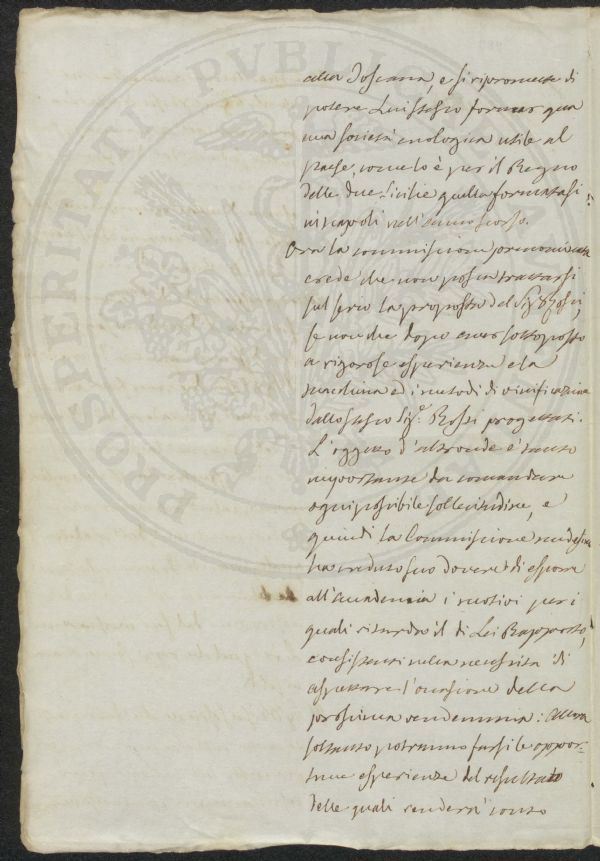 alla Toscana, e si ripromette di
potere Lui stesso formar qua
una società enologica utile al
paese, come lo è per il Regno
delle due Sicilie quella formatasi
in Napoli nell'anno scorso.
Ora la commissione prenominata
crede che non possa trattarsi
sul serio la proposta del Sig. Rossi,
se non che dopo aver sottoposto
a rigorose esperienze e la
macchina ed i metodi di vinificazione
dallo stesso Sig.e Rossi progettati.
L'oggetto d'altronde è tanto
importante da comandare
ogni possibile sollecitudine, e
quindi la Commissione medesima
ha creduto suo dovere di esporre
all'Accademia i motivi per i
quali ritarda il di Lei Rapporto,
consistenti nella necessità di
aspettare l'occasione della
prossima vendemmia: allora
soltanto potranno farsi le oppor-
tune esperienze del resultato
delle quali renderà conto
PROSPERITATI PVBLICAE